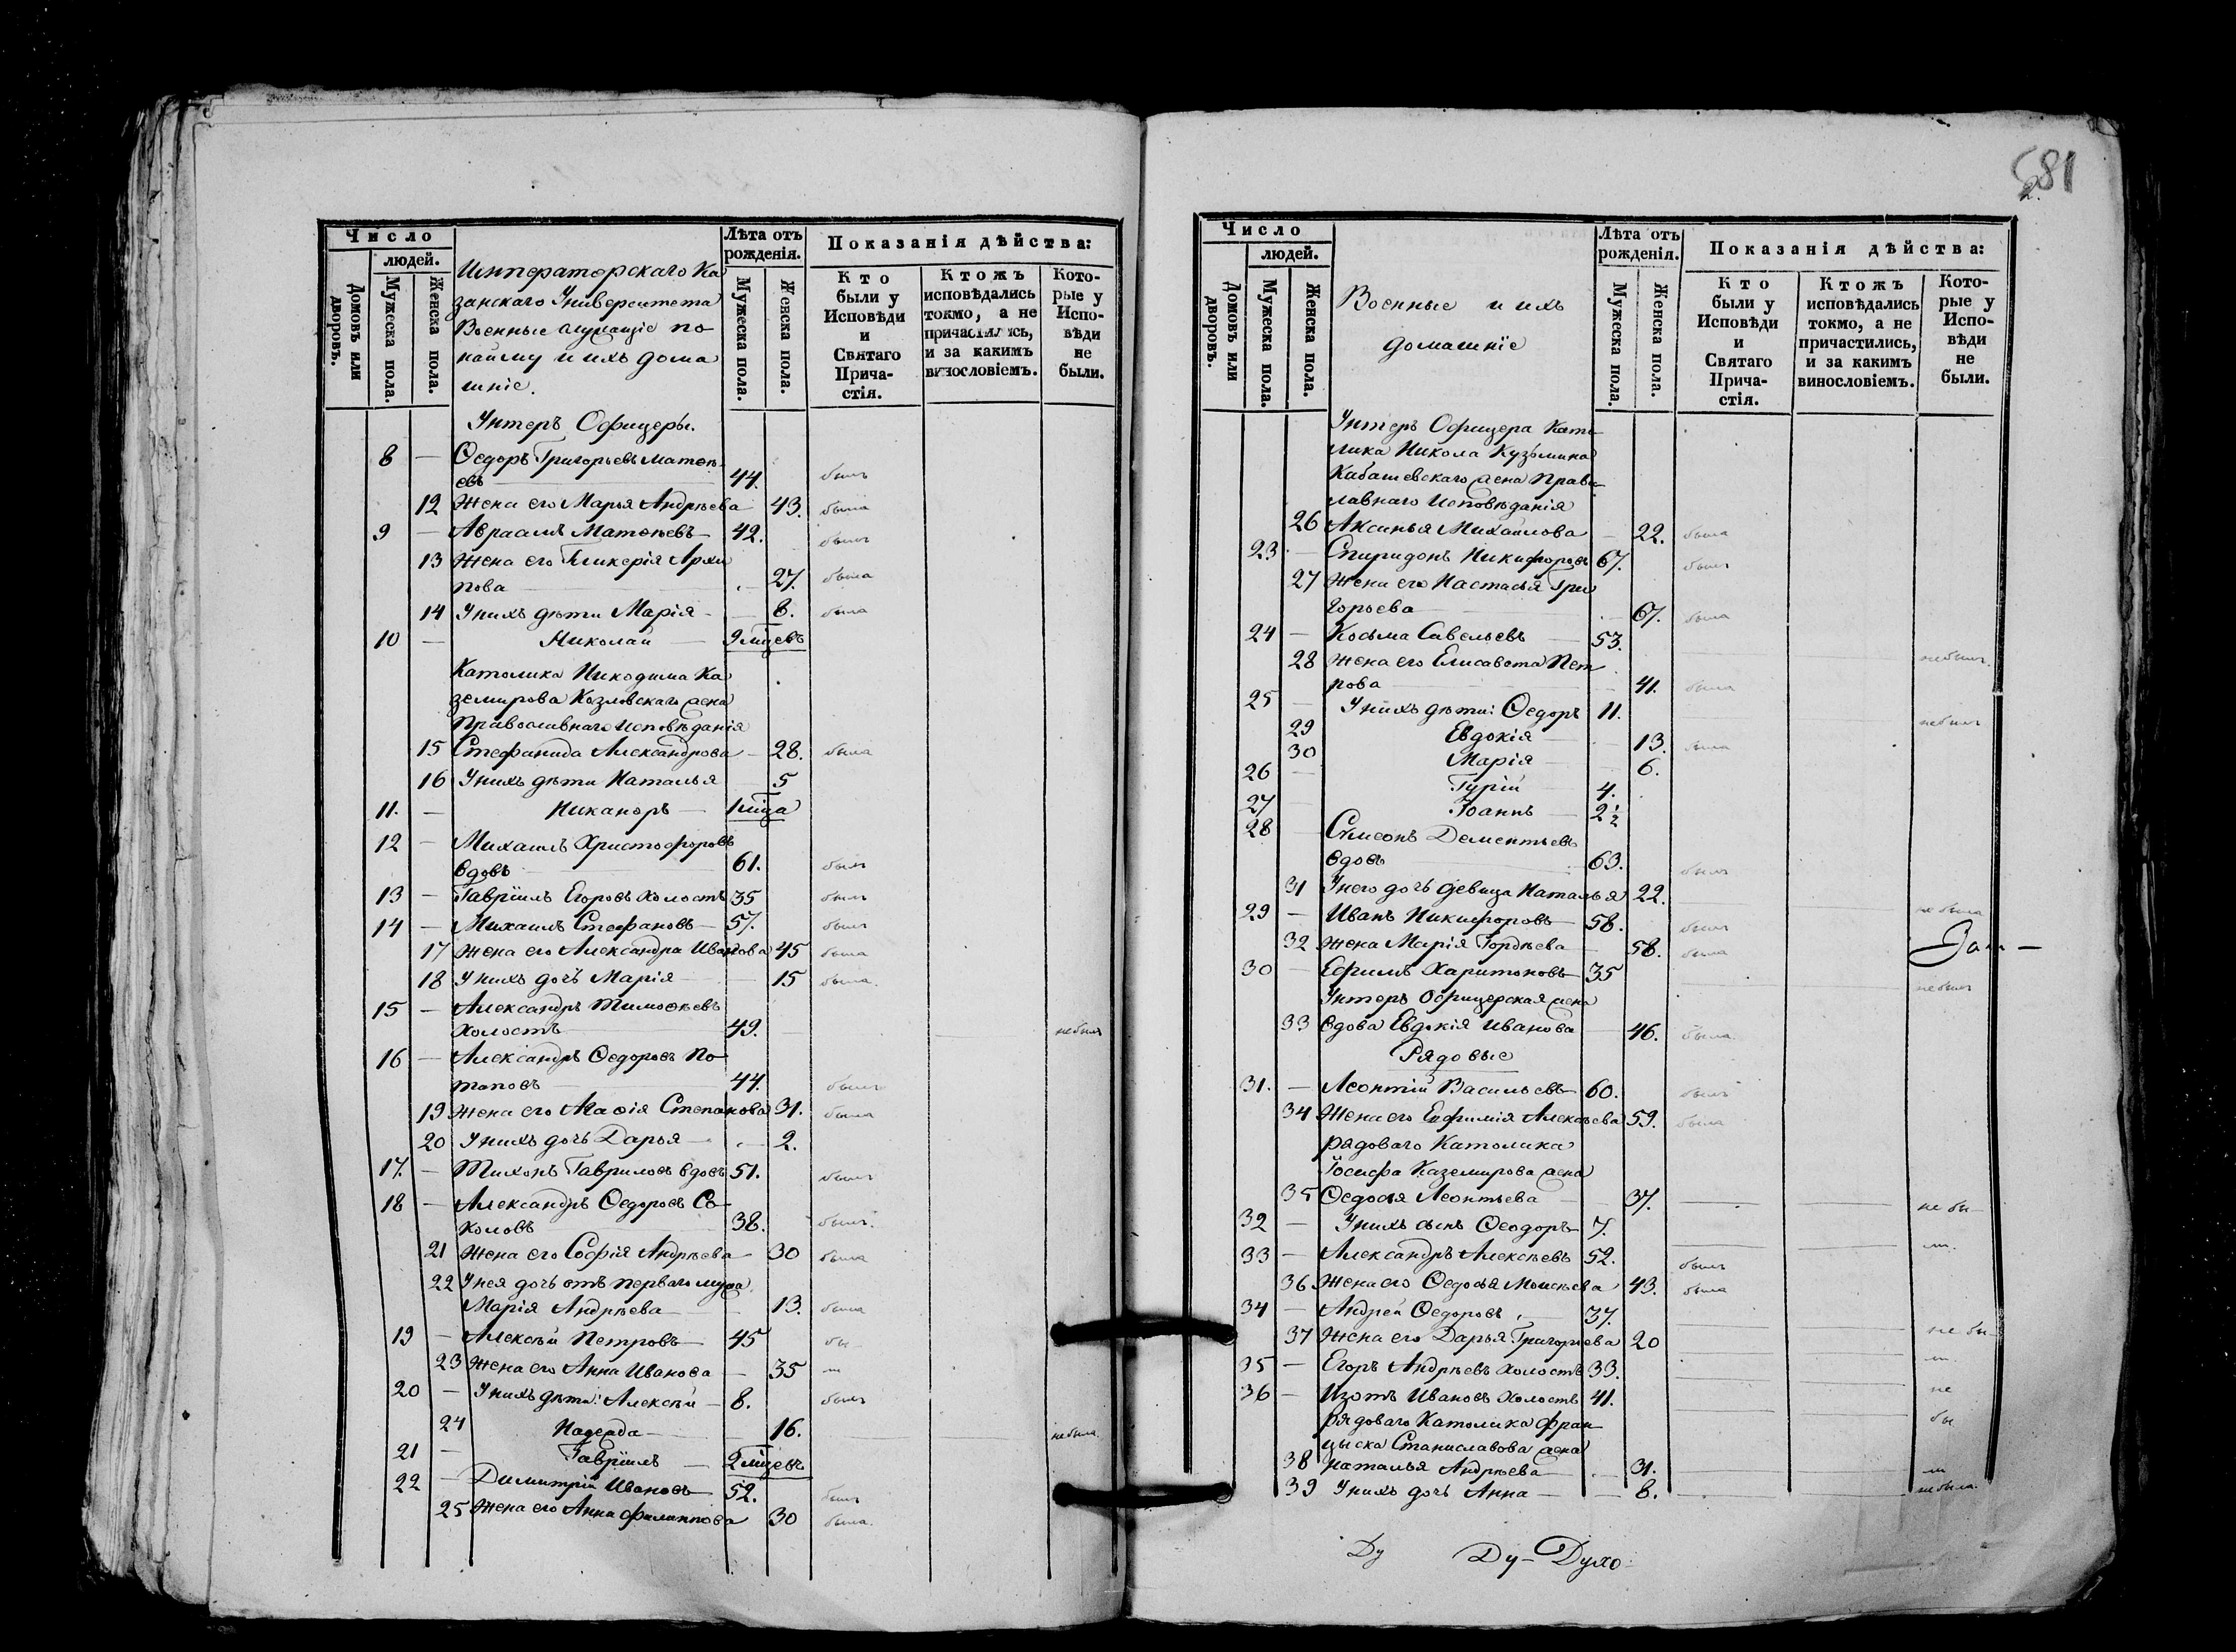 Число
людей.
Домовъ или дворовъ.
Мужеска пола.
Женска пола.
Императорскаго Ка
занскаго Университета
Военные служащіе по
найму и ихъ дома
шніе.
Лѣта отъ рожденія.
Мужеска пола.
Женска пола.
Показанія дѣйства:
Кто были у Исповѣди и Святаго Причастія.
Ктожъ исповѣдались токмо, а не причастились, и за какимъ винословіемъ.
Которые у Исповѣди не были.
Унтеръ Офицеры.
8 — Ѳедоръ Григорьевъ Матѳѣ-
евъ 44. былъ
12 Жена его Марья Андрѣева 43. была
9 — Авраамъ Матѳѣевъ — 42. былъ
13 Жена его Гликерія Архи
пова — 27. была
14 У нихъ дѣти Марія — 8. была
10 — Николай — 9 мцевъ
Католика Никодима Ка
земирова Козловскаго жена
Православнаго Исповѣданія
15 Стефанида Александрова — 28. была
16 У нихъ дѣти Наталья — 5
11. — Никаноръ — 1 мца
12 — Михаилъ Христофоровъ
вдовъ 61. былъ
13 — Гавріилъ Егоровъ холостъ 35 былъ
14 — Михаилъ Стефановъ — 57. былъ
17 Жена его Александра Иванова 45 была
18 У нихъ дочь Марія — 15 была.
15 — Александръ Тимоѳѣевъ
холостъ 49. не былъ
16 — Александръ Ѳедоровъ По-
таповъ 44. былъ
19 Жена его Агаѳія Степанова 31. была
20 У нихъ дочь Дарья — 2.
17. — Тихонъ Гавриловъ вдовъ 51. былъ
18 — Александръ Ѳедоровъ Со-
коловъ 38. былъ.
21 Жена его Софія Андрѣева — 30 была
22 У нея дочь отъ перваго мужа
Марія Андрѣева — 13. была
19 — Алексѣй Петровъ — 45 бы
23 Жена его Анна Иванова — 35 —
20 — У нихъ дѣти: Алексѣй — 8. былъ
24 Надежда — 16. не была.
21 — Гавріилъ — 2 мцевъ
22 — Димитрій Ивановъ — 52. былъ
25 Жена его Анна Филиппова 30 была.
581
2.
Число
людей.
Домовъ или дворовъ.
Мужеска пола.
Женска пола.
Военные и ихъ
домашніе
Лѣта отъ рожденія.
Мужеска пола.
Женска пола.
Показанія дѣйства:
Кто были у Исповѣди и Святаго Причастія.
Ктожъ исповѣдались токмо, а не причастились, и за какимъ винословіемъ.
Которые у Исповѣди не были.
Унтеръ Офицера Като-
лика Никола Кузьмина
Кабашевскаго жена Право-
лавнаго Исповѣданія
26 Аксинья Михайлова — 22. была
23. — Спиридонъ Никифоровъ 67. былъ
27 Жена его Настасья Гри
горьева — 67. была
24 — Косьма Савельевъ — 53. не былъ.
28 Жена его Елисавета Пет
рова — 41. была
25 — У нихъ дѣти: Ѳедоръ 11. не былъ
29 Евдокія — 13. была
30 Марія — 6.
26 — Гурій — 4.
27 — Іоаннъ — 2 1/2
28 — Сѵмеонъ Дементьевъ
вдовъ 63. былъ
31 У него дочь девица Наталья 22. не была
29 — Иванъ Никифоровъ — 58. былъ
32 Жена Марія Гордѣева — 58. была
30 — Ефимъ Харитоновъ — 35 не былъ
Унтеръ Офицерская жена
33 вдова Евдокія Иванова — 46. была.
Рядовые
31. — Леонтій Васильевъ — 60. былъ
34 Жена его Евфимія Алексѣева 59. была
рядоваго Католика
Іосифа Каземирова жена
35 Ѳедосья Леонтьева — 37. не бы-
32 — У нихъ сынъ Ѳеодоръ — 7.
33 — Александръ Алексѣевъ 52. былъ
36 Жена его Ѳедосья Моисѣева 43. была
34 — Андрей Ѳедоровъ — 37. не бы-
37 Жена его Дарья Григорьева 20
35 — Егоръ Андрѣевъ холостъ 33. не
36 — Изотъ Ивановъ Холостъ 41. бы
рядоваго Католика Фран
цыска Станиславова жена
38 Наталья Андрѣева — 31.
39 У нихъ дочь Анна — 8. не была.
Ду Ду- Духо